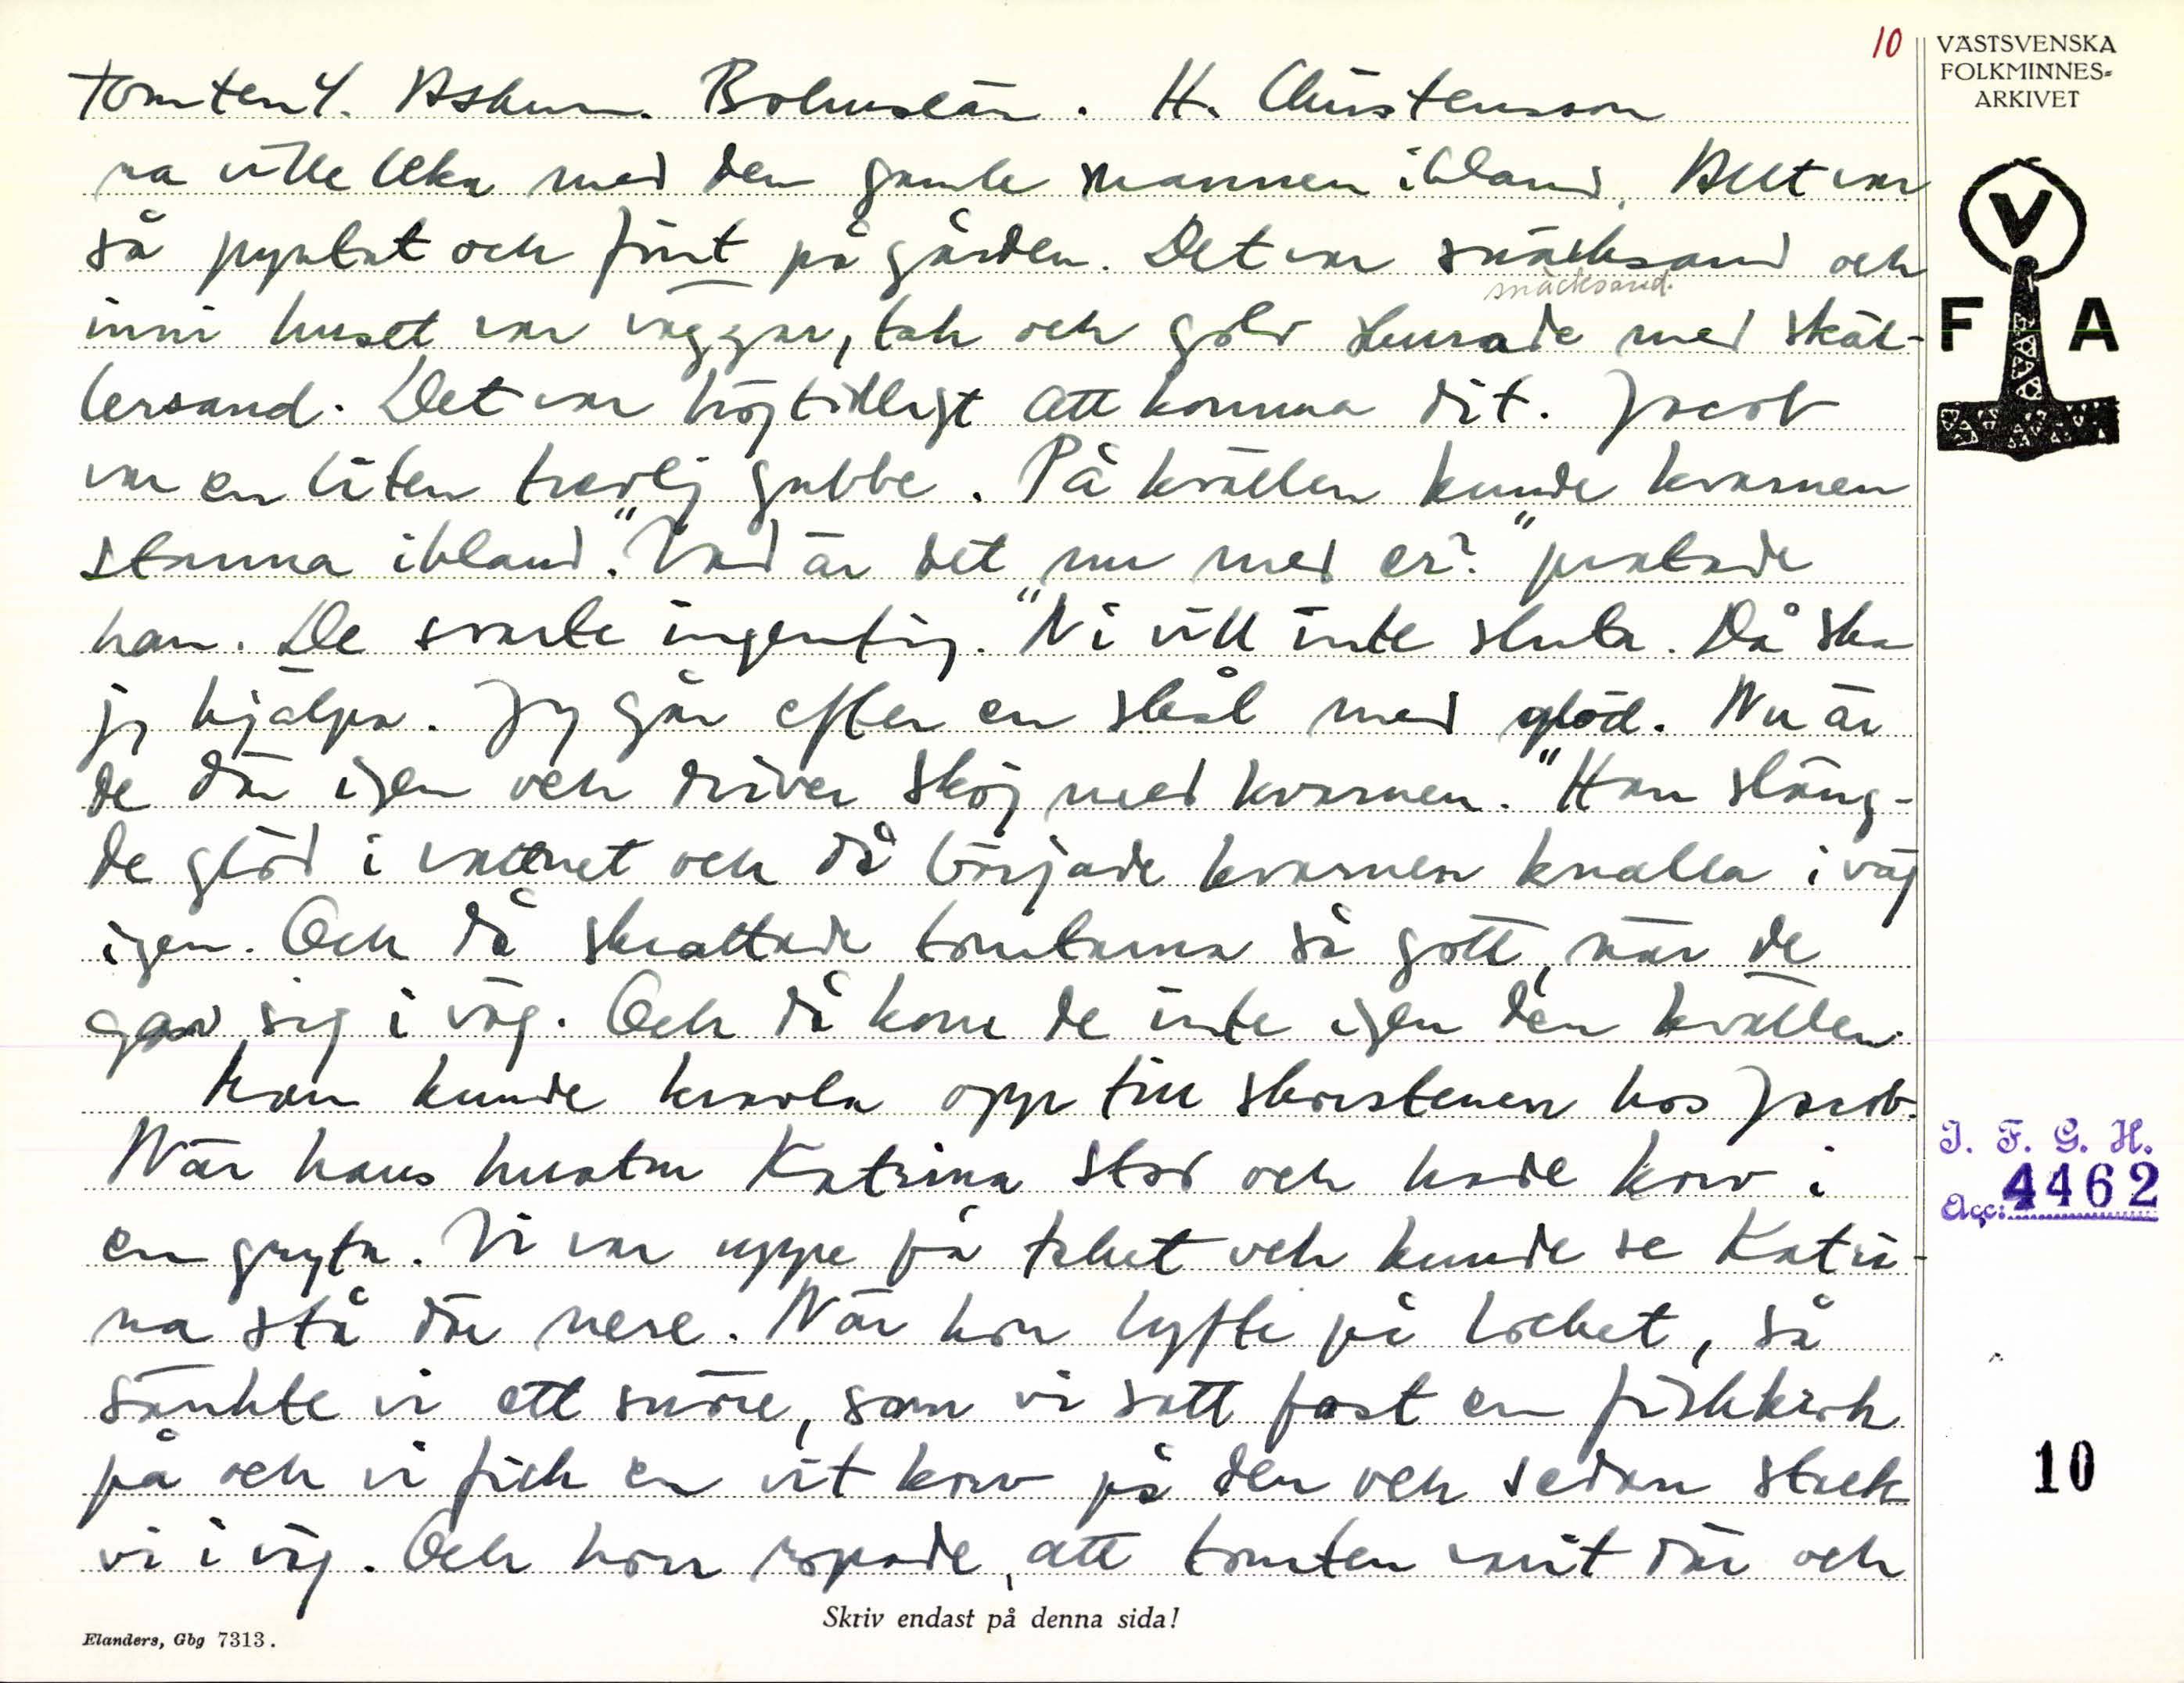 10
VÄSTSVENSKA
FOLKMINNES-
ARKIVET
Tomten 4. Askum. Bohuslän. H. Christensson
na ville leka med den gamle mannen ibland. Allt var
så pyntat och fint på gården. Det var snäcksand och
snäcksand.
inni huset var väggar, tak och golv skurade med skäl-
lersand. Det var högtidligt att komma dit. Jacob
var en liten trevlig gubbe. På kvällen kunde kvarnen
stanna ibland. "Vad är det nu med er?" pratade
han. De svarte ingenting. "Ni vill inte sluta. Då ska
jg hjälpa. Jg går efter en skål med glöd. Nu är
de där igen och driver skoj med kvarnen." Han släng-
de glöd i vattnet och då började kvarnen knalla i väg
igen. Och då skrattade tomtarna så gott, när de
gav sig i väg. Och då kom de inte igen den kvällen.
Man kunde kravla opp till skorstenen hos Jacob.
När hans hustru Katrina stod och hade korv i
en gryta. Vi var uppe på taket och kunde se Katri-
na stå där nere. När hon lyfte på locket, så
sänkte vi ett snöre, som vi satt fast en fiskkrok
på och vi fick en vit korv på den och sedan stack
vi i väg. Och hon ropade, att tomten varit där och
V
F A
I. F. G. H.
Acc: 4462
10
Skriv endast på denna sida!
Elanders, Gbg 7313.